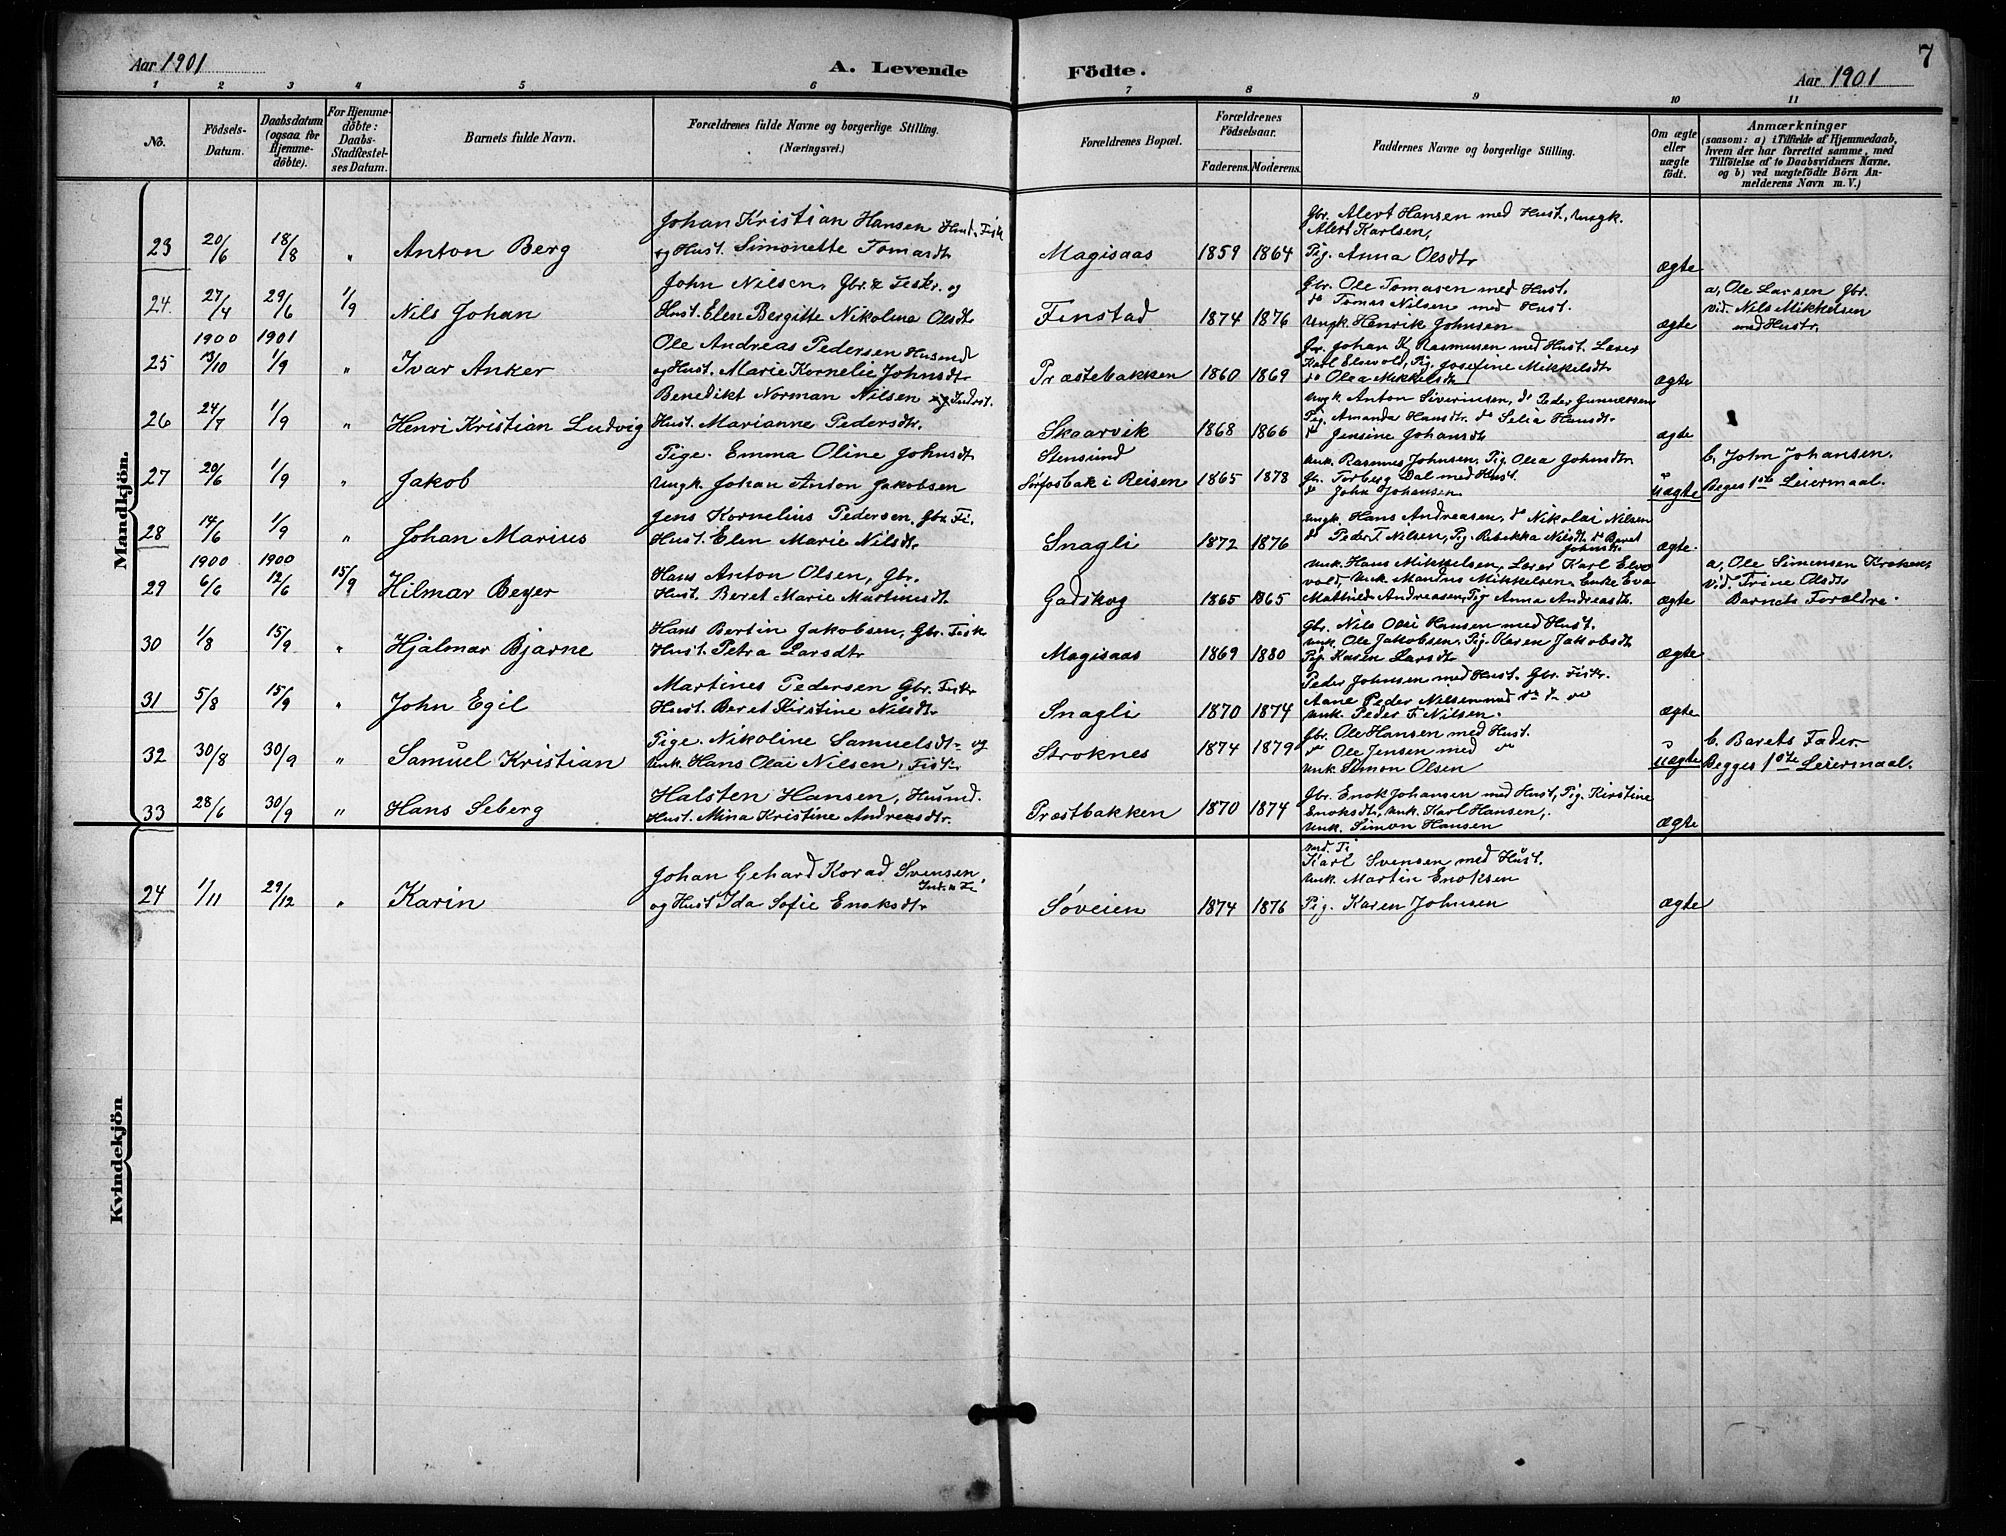 Aar 1901
A. Levende
Födte.
Aar 1901
7
1 2 3 4 5 6 7 8 9 10 11
No.
Födsels-Datum.
Daabsdatum (ogsaa for Hjemmedöbte).
For Hjemmedöbte: Daabs-Stadfæstelses Datum.
Barnets fulde Navn.
Forældrenes fulde Navne og borgerlige Stilling.
(Næringsvei.)
Forældrenes Bopæl.
Forældrenes Födselsaar.
Faderens. Moderens.
Faddernes Navne og borgerlige Stilling.
Om ægte eller uægte födt.
Anmærkninger
(saasom: a) i Tilfælde af Hjemmedaab, hvem der har forrettet samme, med Tilföielse af to Daabsvidners Navne. og b) ved uægtefödte Börn Anmelderens Navn m. V.)
Mandkjön.
23 20/6 18/8 " Anton Berg
Johan Kristian Hansen Husd. Fisk
og Hust. Simonette Tomasdtr
Magisaas 1859 1864
Gbr. Alert Hansen med Hust., Ungk.
Alert Karlsen,
Pig. Anna Olsdtr
ægte
24. 27/4 29/6 1/9 Nils Johan
John Nilsen, Gbr. & Fiskr. og
Hust. Elen Bergitte Nikolina Olsdtr
Finstad 1874 1876
Gbr. Ole Tomasen med Hust.
do Tomas Nilsen med Hust.
Ungk. Henrik Johnsen
ægte
a, Ole Larsen Gbr.
vid. Nils Mikkelsen
med Hustr.
1900 1901
25 13/10 1/9 " Ivar Anker
Ole Andreas Pedersen Husmd
og Hust. Marie Kornelie Johnsdtr
Præstebakken 1860 1869
Gbr. Johan K. Rasmussen med Hust. Lærer
Karl Elvevold, Pig. Josefine Mikkelsdtr
do Olea Mikkelsdtr
ægte
26 24/7 1/9 " Henri Kristian Ludvig
Benedikt Norman Nilsen og Inderst.
Hust. Marianne Pedersdtr.
Skaarvik 1868 1866
Ungk Anton Siverinsen, do Peder Gunnersen
Pig. Amanda Hansdtr. do Selia Hansdtr.
do Jensine Johansdtr
ægte
27 20/6 1/9 " Jakob
Pige. Emma Oline Johnsdtr
Ungk. Johan Anton Jakobsen
Stensund
Sørfosbak i Reisen 1865 1878
Unk. Rasmus Johnsen, Pig. Olea Johnsdtr.
Gbr. Torberg Dal med Hust.
do John Johansen.
uægte
b, John Johansen.
Beges 1ste Leiermaal.
28 14/6 1/9 " Johan Marius
Jens Kornelius Pedersen, Gbr. Fi.
Hust. Elen Marie Nilsdtr.
Snagli 1872 1876
Ungk. Hans Andreasen, do Nikolai Nilsen
do Peder T Nilsen, Pig. Rebekka Nilsdtr do Beret
Johnsdtr.
ægte.
1900 1900
29 6/6 12/6 15/9 Hilmar Beyer
Hans Anton Olsen, Gbr.
Hust. Beret Marie Martinusdtr.
Gadskog 1865 1865
Unk. Hans Mikkelsen, Lærer Karl Elve
vold, Unk Mandrus Mikkelsen, Enke Eva
Mathild Andreasen, Pig Anna Andreasdtr.
ægte
a, Ole Simonsen Kroken,
vid. Trine Olsdtr
Barnets Forældre.
30 1/8 15/9 " Hjalmar Bjarne
Hans Bertin Jakobsen, Gbr. Fisk
Hust. Petra Larsdtr
Magisaas 1869 1880
Gbr. Nils Olai Hansen med Hust.
Unk. Ole Jakobsen, Pig. Karen Jakobsdtr
Pig. Karen Larsdtr
ægte
31 5/8 15/9 " John Egil
Martines Pedersen Gbr. Fiskr
Hust. Beret Kirstine Nilsdtr.
Snagli 1870 1874
Peder Johnsen med Hust. Gbr. Fiskr.
Aane Peder Nilsen med do do do
Unk. Peder F Nilsen.
ægte
32 30/8 30/9 " Samuel Kristian
Pige. Nikoline Samuelsdtr og
Unk. Hans Olai Nilsen, Fiskr
Stroknes 1874 1879
Gbr. Ole Hansen med Hust.
do Ole Jensen med do
Unk Simon Olsen
uægte
b, Barets Fader.
Begges 1ste Leiermaal.
33 28/6 30/9 " Hans Seberg
Halsten Hansen, Husmd.
Hust. Mina Kristine Andreasdtr.
Præstbakken 1870 1874
Gbr. Enok Johansen med Hust, Pig. Kirstine
Enoksdtr, Unk. Karl Hansen,
Unk. Simon Hansen
ægte
Kvindekjön
24 1/11 29/12 " Karin
Johan Gehard Korad Svensen,
Ind. & Fi
og Hust Ida Sofie Enoksdtr
Søveien 1874 1876
Karl Svensen med Hust.
Unk. Martin Enoksen
Pig. Karen Johnsen
ægte